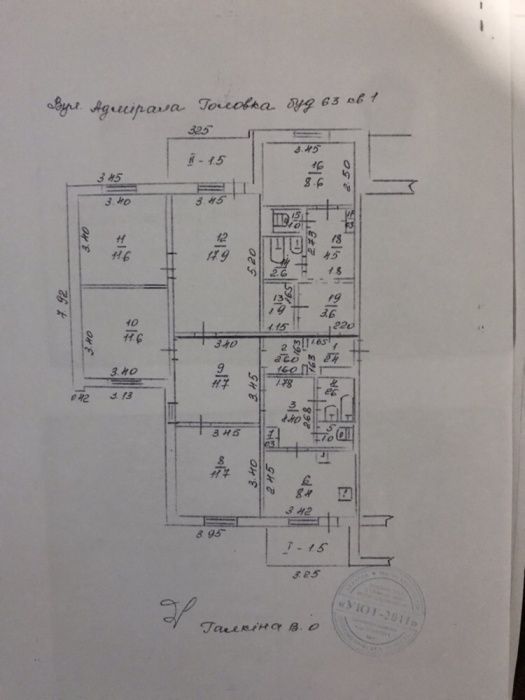 Вул. Адмірала Головка буд 63 кв 1
325
II - 1.5
3.45
16
8.6
2.50
3.45
3.40
3.45
15
1.0
3.40
11
11.6
12
17.9
5.20
2.73
18
4.5
14
2.6
1.8
7.92
13
1.9
1.65
19
3.6
1.15
2.20
3.40
10
11.6
3.40
2
2.60
1.63
1.05
1
2.4
1.63
1.60
3.40
9
11.7
3.45
1.78
4
2.6
0.42
3.13
3
4.40
2.68
7
0.3
5
1.0
3.45
8
11.7
3.40
2.45
6
8.4
3.42
3.95
I - 1.5
3.25
Галкіна В. О
«УЮТ-2011»